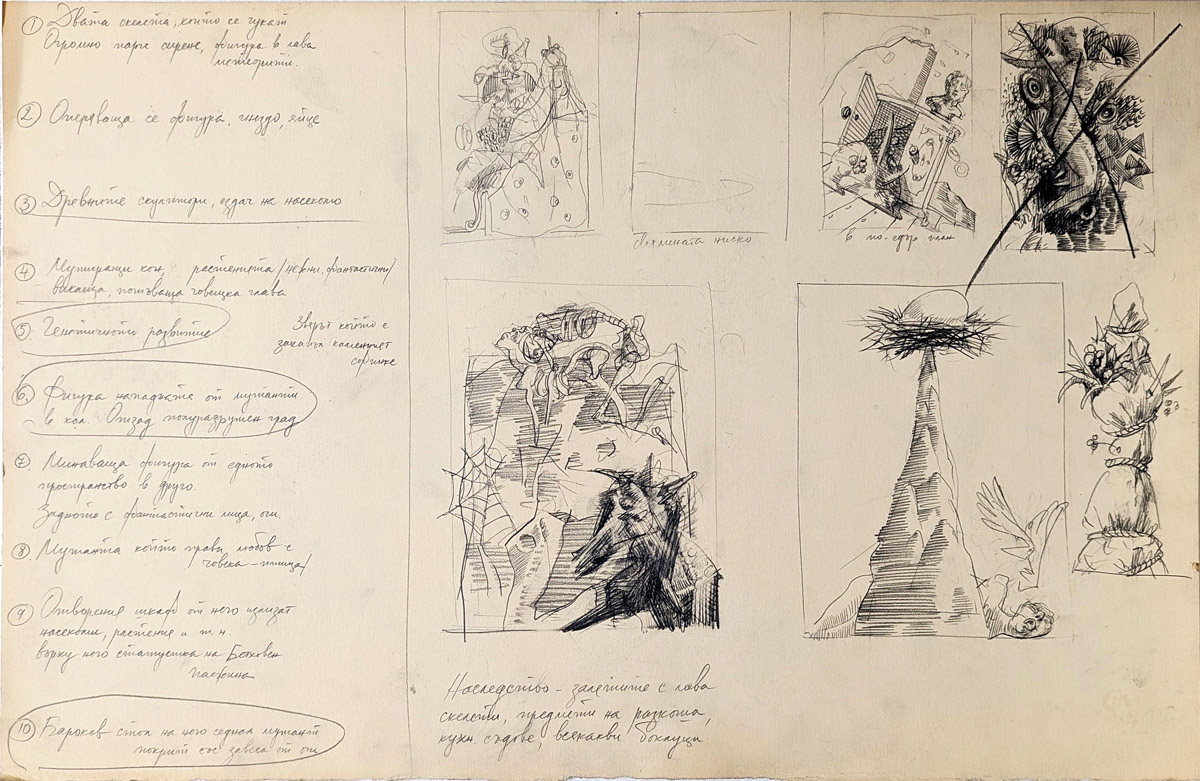 ① Двата скелета, които се чукат
Огромно парче сирене, фигура в лава
метеорити.
② Оперяваща се фигура, гнездо, яйце
③ Древните скулптори, ездач на насекомо
④ Мутиращи кон, растенията /нежни, фантастични/
викаща, потъваща човешка глава
⑤. Генетичното развитие
Звярът който е
захапал
6. Фигура нападната от мутанти
в кал. Отзад полуразрушен град
⑦. Минаваща фигура от едното
пространство в друго.
Задното с фантастични лица, очи
⑧ Мутанта който прави любов с
човека – птица/
⑨ Отворения шкаф от него излизат
насекоми, растения и
върху него статуетка на Бетховен
⑩ Бароков стол на него седнал мутант
покрит със завеса от очи
ниско
в по-едър план
Наследство – залетите с лава
скелети, предмети на разкоша,
кухи съдове, всекакви боклуци